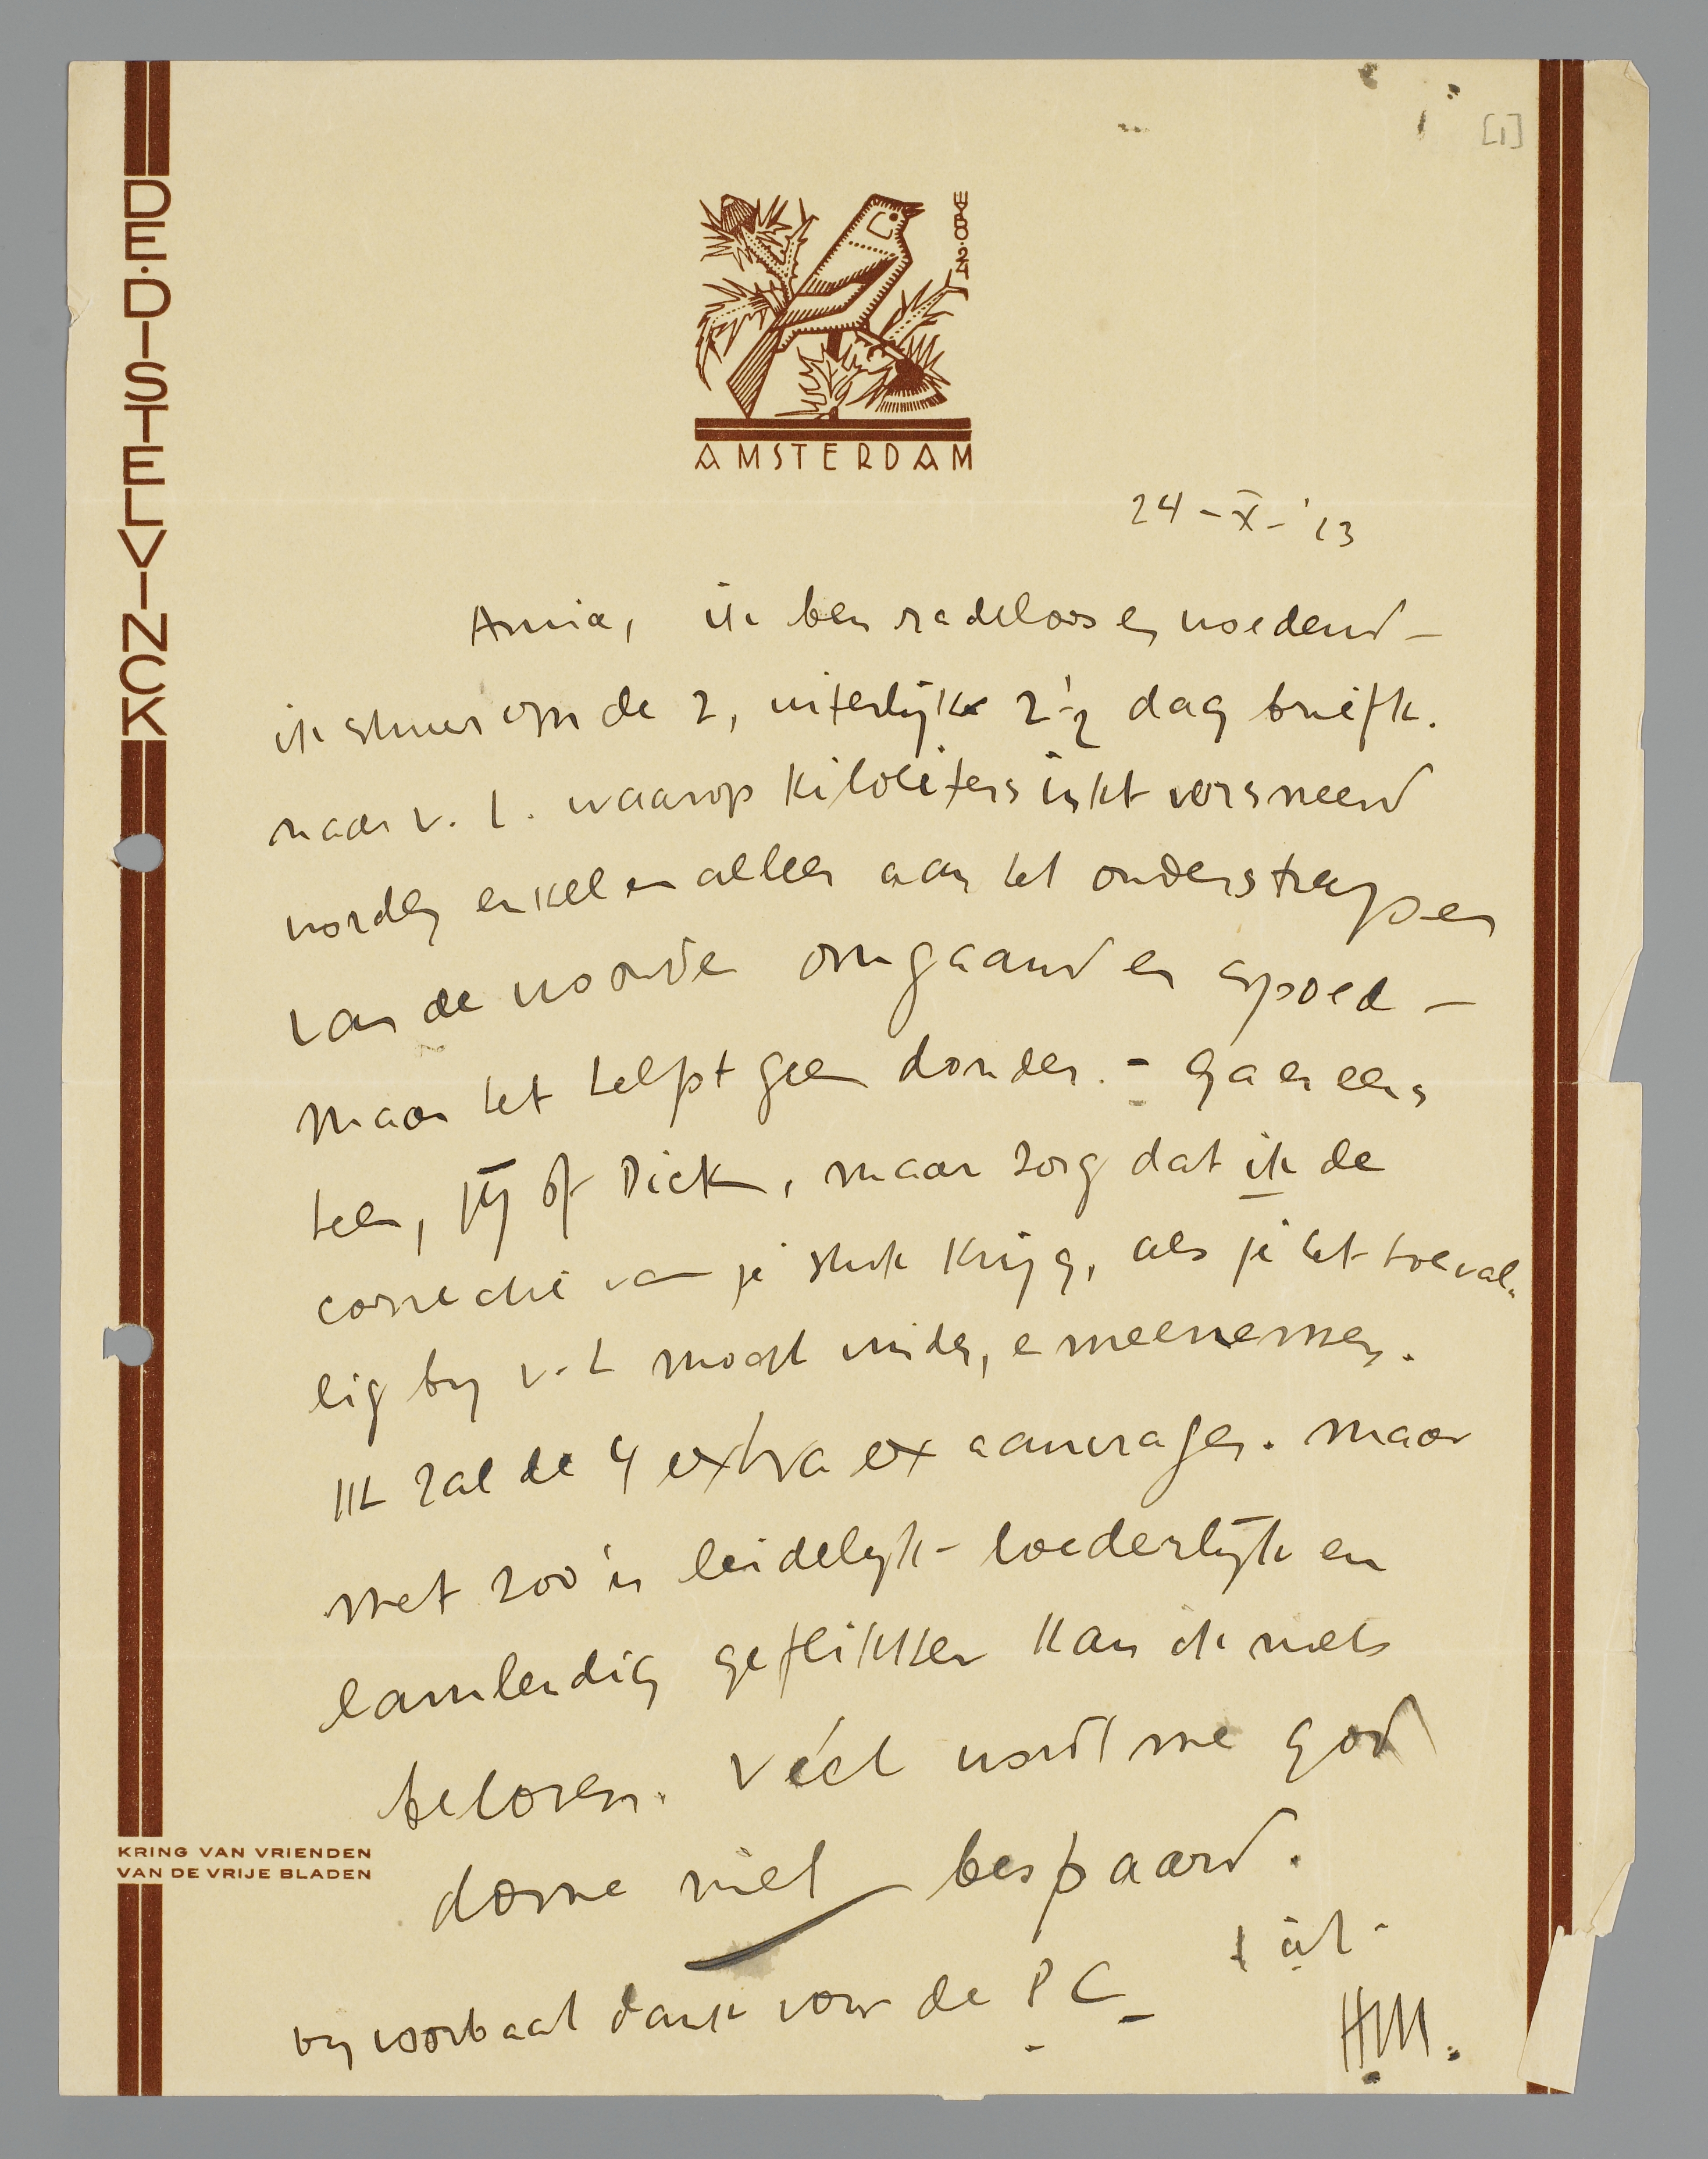 [1]
DE·DISTELVINCK
WYBO·24
AMSTERDAM
24 – X – '23
Annie, ik ben radeloos en woedend –
ik stuur om de 2, uiterlijk 2½ dag briefk.
naar v. L. waarop kiloliters inkt versmeerd
worden enkel en alleen aan het onderstrepen
van de woorden omgaand en spoed –
maar het helpt geen donder. – Ga er eens
heen, jij of Dick, maar zorg dat ik de
correctie van je stuk krijg, als je het toeval-
lig bij v. L mocht vinden, en meenemen.
Ik zal de 4 extra ex aanvragen. maar
met zoo'n leidelijk – loederlijk en
lamlendig geflikker kan ik niets
beloven. Véél wordt me god
domme niet bespaard.
KRING VAN VRIENDEN
VAN DE VRIJE BLADEN
bij voorbaat dank voor de P C –
HM.